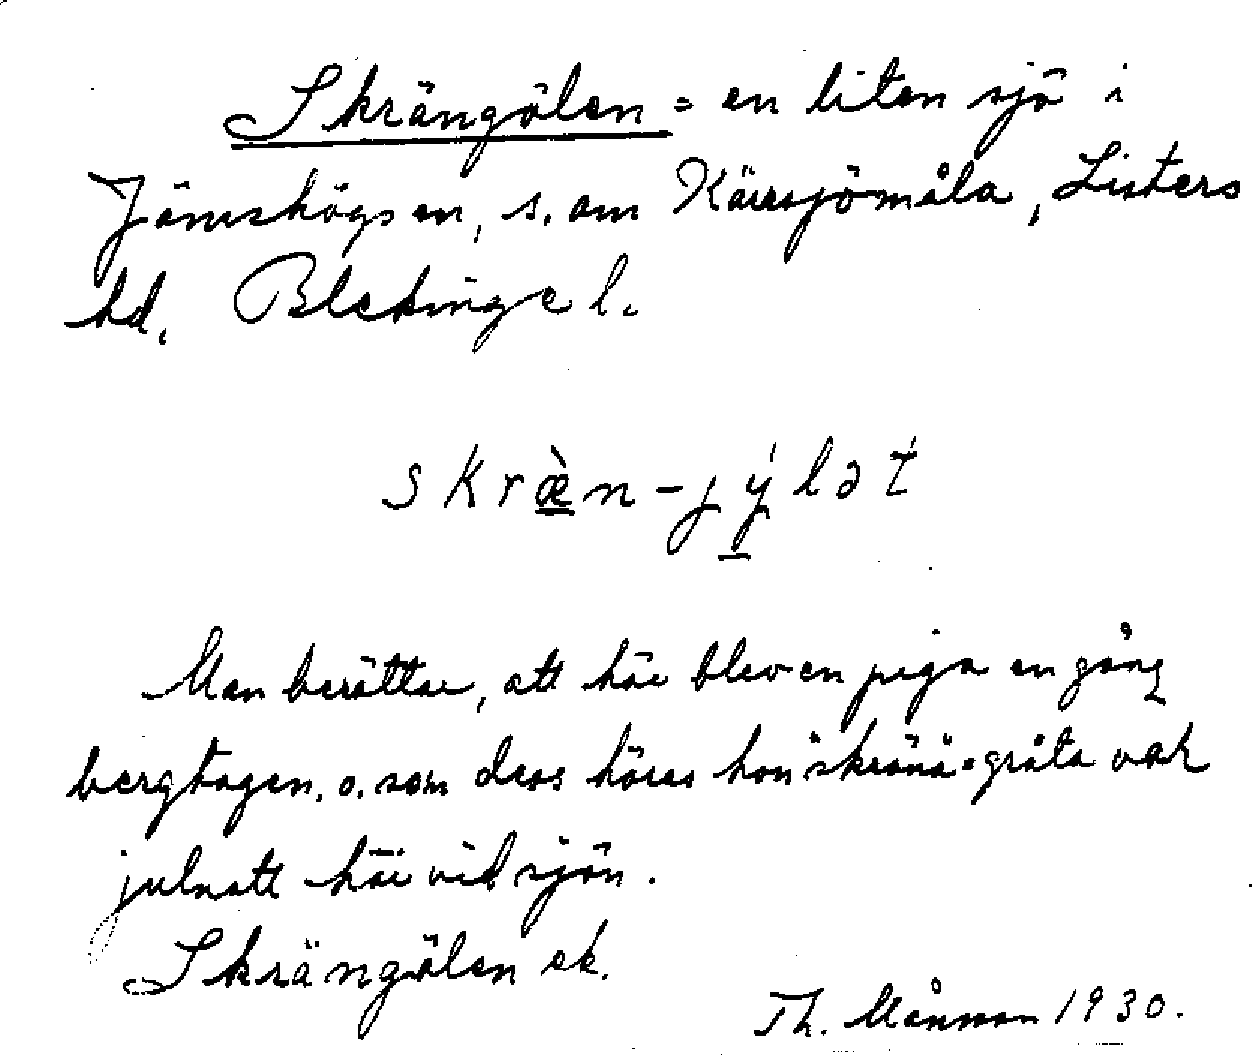 Skrängölen = en liten sjö i
Jämshögs sn, s. om Kärrsjömåla, Listers
hd, Blekinge l.
skræ̀n-jýlət
Man berättar, att här blev en piga en gång
bergtagen, o. som dess höres hon "skräna" = gråta varje
julnatt här vid sjön.
Skrängölen ek.
Th. Månsson 1930.